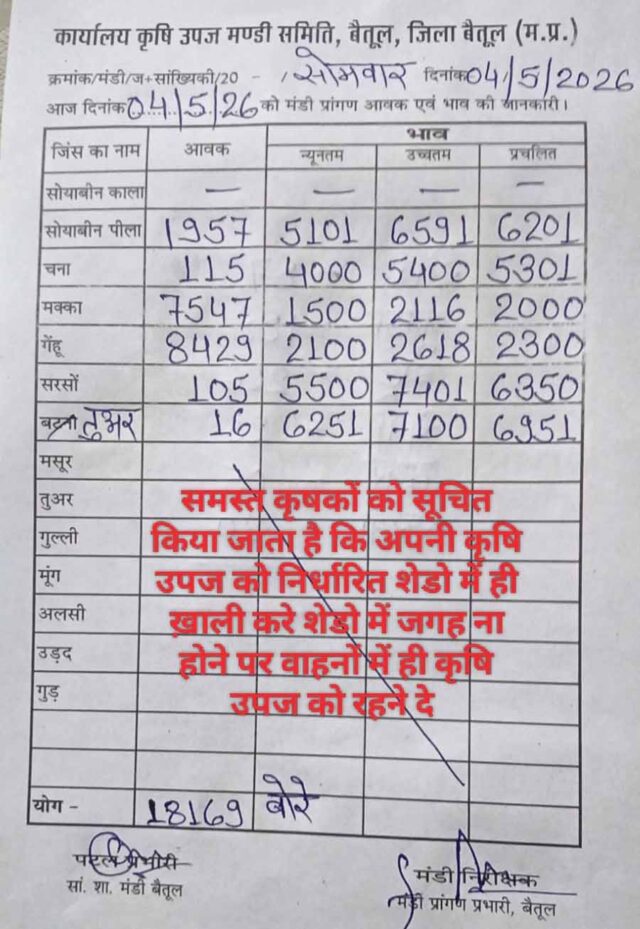 कार्यालय कृषि उपज मण्डी समिति, बैतूल, जिला बैतूल (म.प्र.)
क्रमांक/मंडी/ज+सांख्यिकी/20 - / सोमवार दिनांक 04/5/2026
आज दिनांक 04/5/26 को मंडी प्रांगण आवक एवं भाव की जानकारी।
जिंस का नाम आवक भाव
न्यूनतम उच्चतम प्रचलित
सोयाबीन काला — — — —
सोयाबीन पीला 1957 5101 6591 6201
चना 115 4000 5400 5301
मक्का 7547 1500 2116 2000
गेंहू 8429 2100 2618 2300
सरसों 105 5500 7401 6350
बटना तुअर 16 6251 7100 6951
मसूर
तुअर
गुल्ली
मूंग
अलसी
उड़द
गुड़
समस्त कृषकों को सूचित
किया जाता है कि अपनी कृषि
उपज को निर्धारित शेडो में ही
ख़ाली करे शेडो में जगह ना
होने पर वाहनों में ही कृषि
उपज को रहने दे
योग - 18169 बोरे
प्रभारी
सां. शा. मंडी बैतूल
मंडी निरीक्षक
मंडी प्रांगण प्रभारी, बैतूल